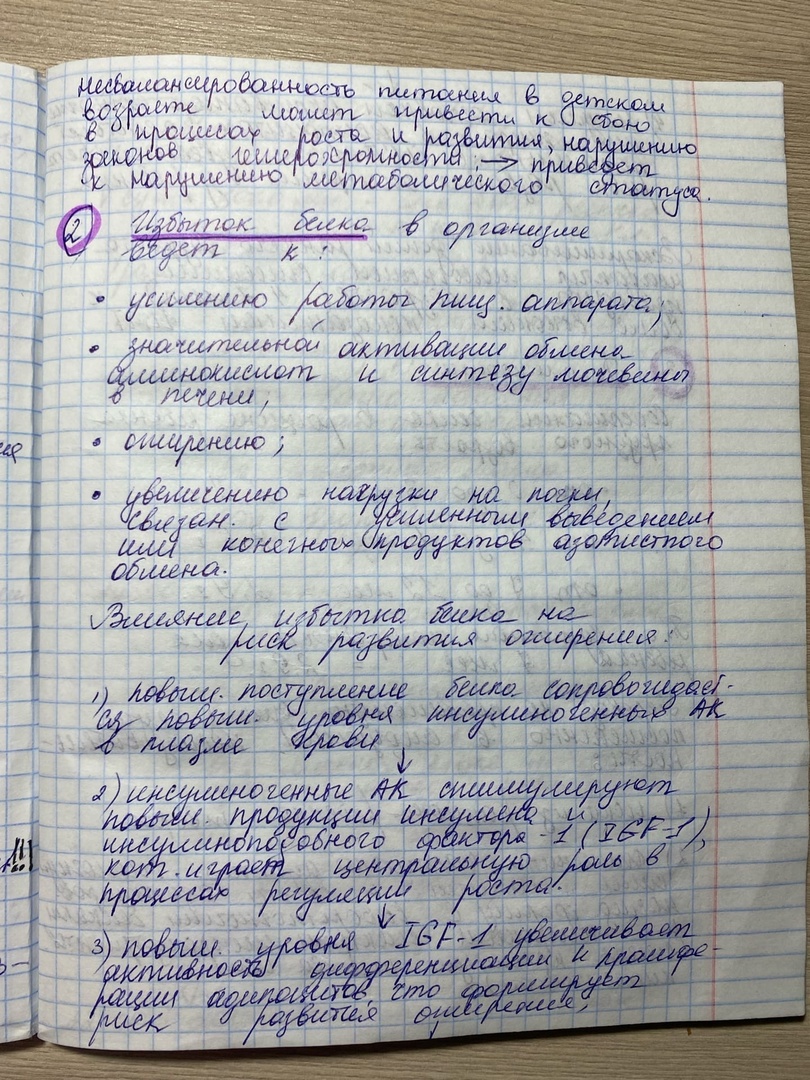 Несбалансированность питания в детском
возрасте может привести к сбою
в процессах роста и развития, нарушению
законов гетерохромности → приведет
к нарушению метаболического статуса.
2 Избыток белка в организме
ведет к:
• усилению работы пищ. аппарата;
• значительной активации обмена
аминокислот и синтезу мочевины
в печени;
• ожирению;
• увеличению нагрузки на почки,
связан. с усиленным выведением
или конечных продуктов азотистого
обмена.
Влияние избытка белка на
риск развития ожирения:
1) повыш. поступление белка сопровождает-
ся повыш. уровня инсулиногенных АК
в плазме крови
↓
2) инсулиногенные АК стимулируют
повыш. продукции инсулина и
инсулиноподобного фактора -1 (IGF-1),
кот. играет центральную роль в
процессах регуляции роста.
↓
3) повыш. уровня IGF-1 увеличивает
активность дифференциации и пролифе-
рации адипоцитов, что формирует
риск развития ожирения;
!!!